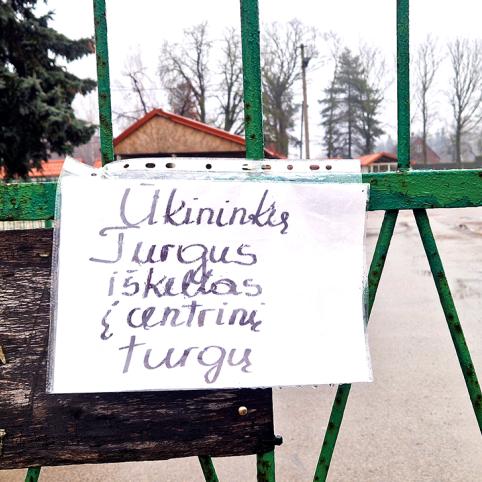 Ūkininkų
Turgus
iškeltas
į centrinį
turgų